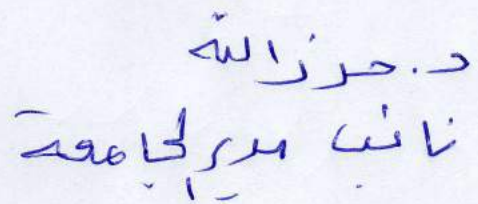 د. حرز الله
نائب مدير الجامعة